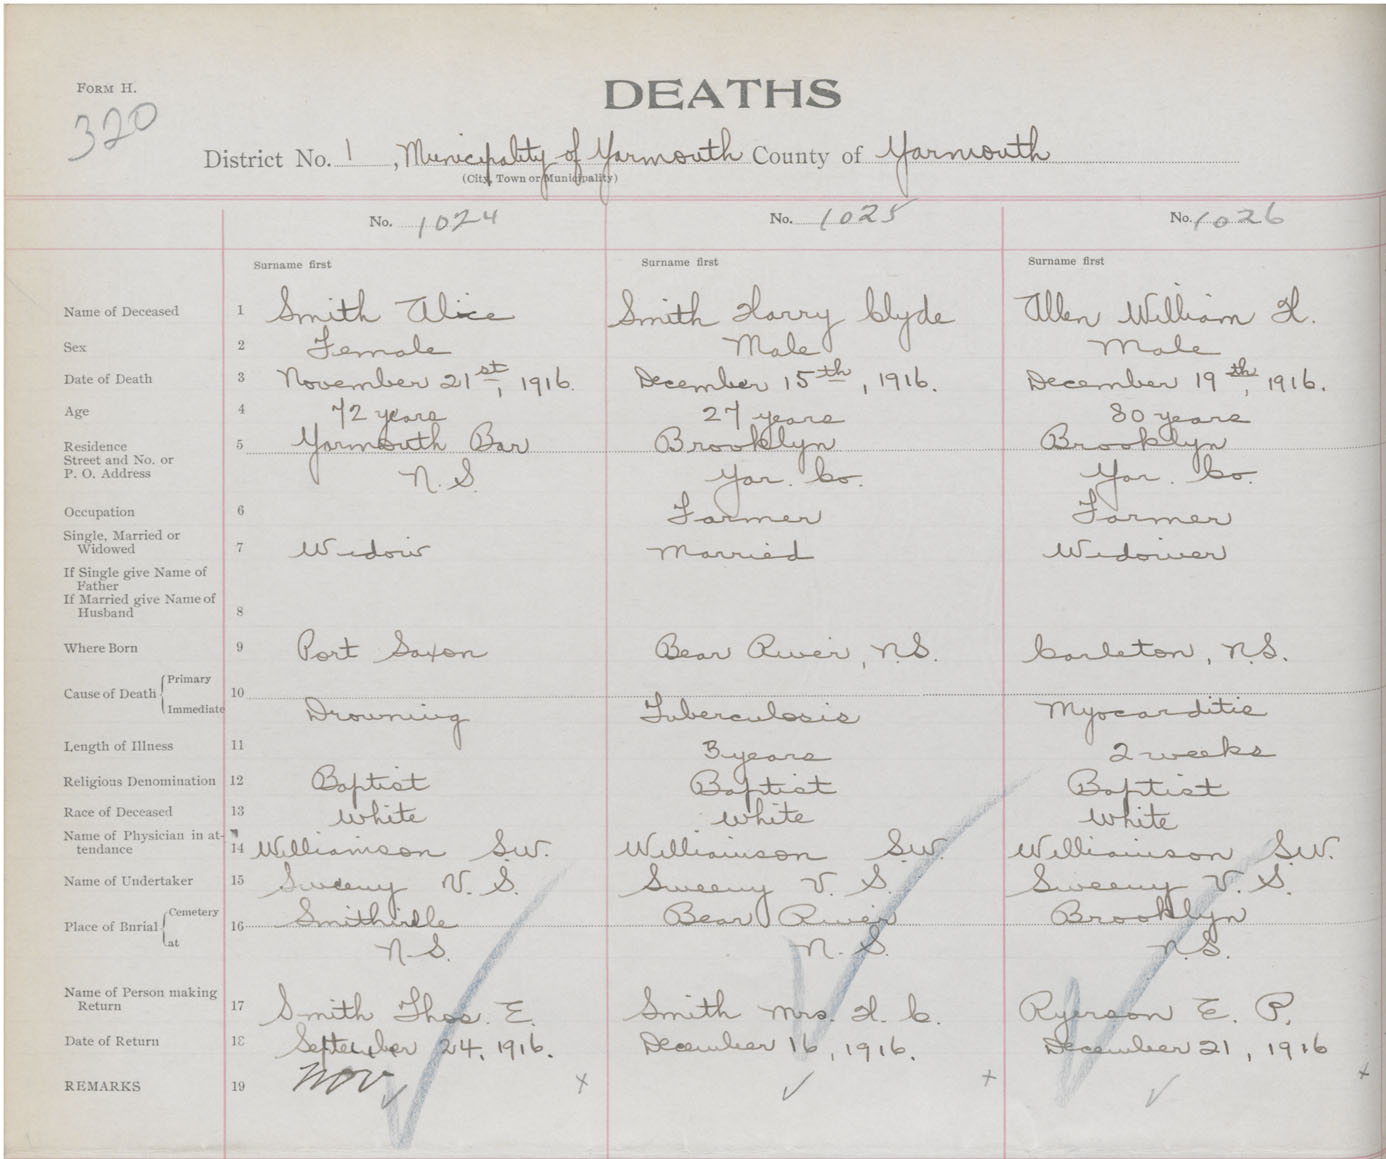 FORM H.
DEATHS
320
District No. 1, Municipality of Yarmouth County of Yarmouth
(City, Town or Municipality)
No. 1024 No. 1025 No. 1026
Surname first Surname first Surname first
Name of Deceased 1 Smith Alice Smith Harry Clyde Allen William H.
Sex 2 Female Male Male
Date of Death 3 November 21st, 1916. December 15th, 1916. December 19th, 1916.
Age 4 72 years 27 years 80 years
Residence 5 Yarmouth Bar Brooklyn Brooklyn
Street and No. or
P. O. Address N.S. Yar. Co. Yar. Co.
Occupation 6 Farmer Farmer
Single, Married or
Widowed 7 Widow Married Widower
If Single give Name of
Father
If Married give Name of
Husband 8
Where Born 9 Port Saxon Bear River, N.S. Carleton, N.S.
Cause of Death Primary 10
Immediate Drowning Tuberculosis Myocarditis
Length of Illness 11 3 years 2 weeks
Religious Denomination 12 Baptist Baptist Baptist
Race of Deceased 13 White White White
Name of Physician in at-
tendance 14 Williamson S.W. Williamson S.W. Williamson S.W.
Name of Undertaker 15 Sweeny V. S. Sweeny V. S. Sweeny V. S.
Place of Burial Cemetery 16 Smithville Bear River Brooklyn
at N.S. N.S. N.S.
Name of Person making
Return 17 Smith Thos. E. Smith Mrs. H. C. Ryerson E. P.
Date of Return 18 September 24, 1916. December 16, 1916. December 21, 1916
REMARKS 19 Nov